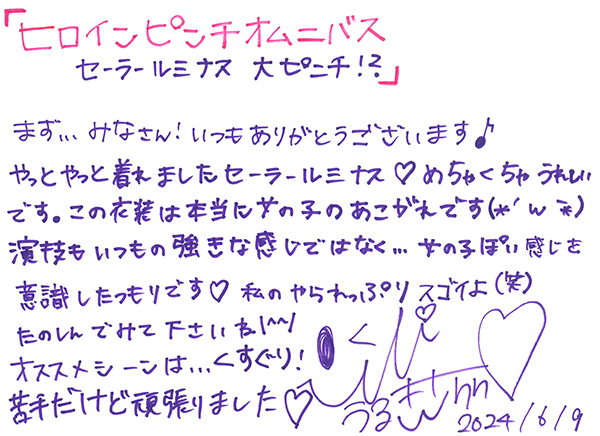 「ヒロインピンチオムニバス
セーラールミナス 大ピンチ!?」
まず… みなさん!いつもありがとうございます♪
やっとやっと着れましたセーラールミナス♡めちゃくちゃうれしい
です。この衣装は本当に女の子のあこがれです(*'ω'*)
演技もいつもの強きな感じではなく…女の子ぽい感じを
意識したつもりです♡私のやられっぷりスゴイよ(笑)
たのしんでみて下さいね!^^)
オススメシーンは…くすぐり!
苦手だけど頑張りました♡
2024/6/9